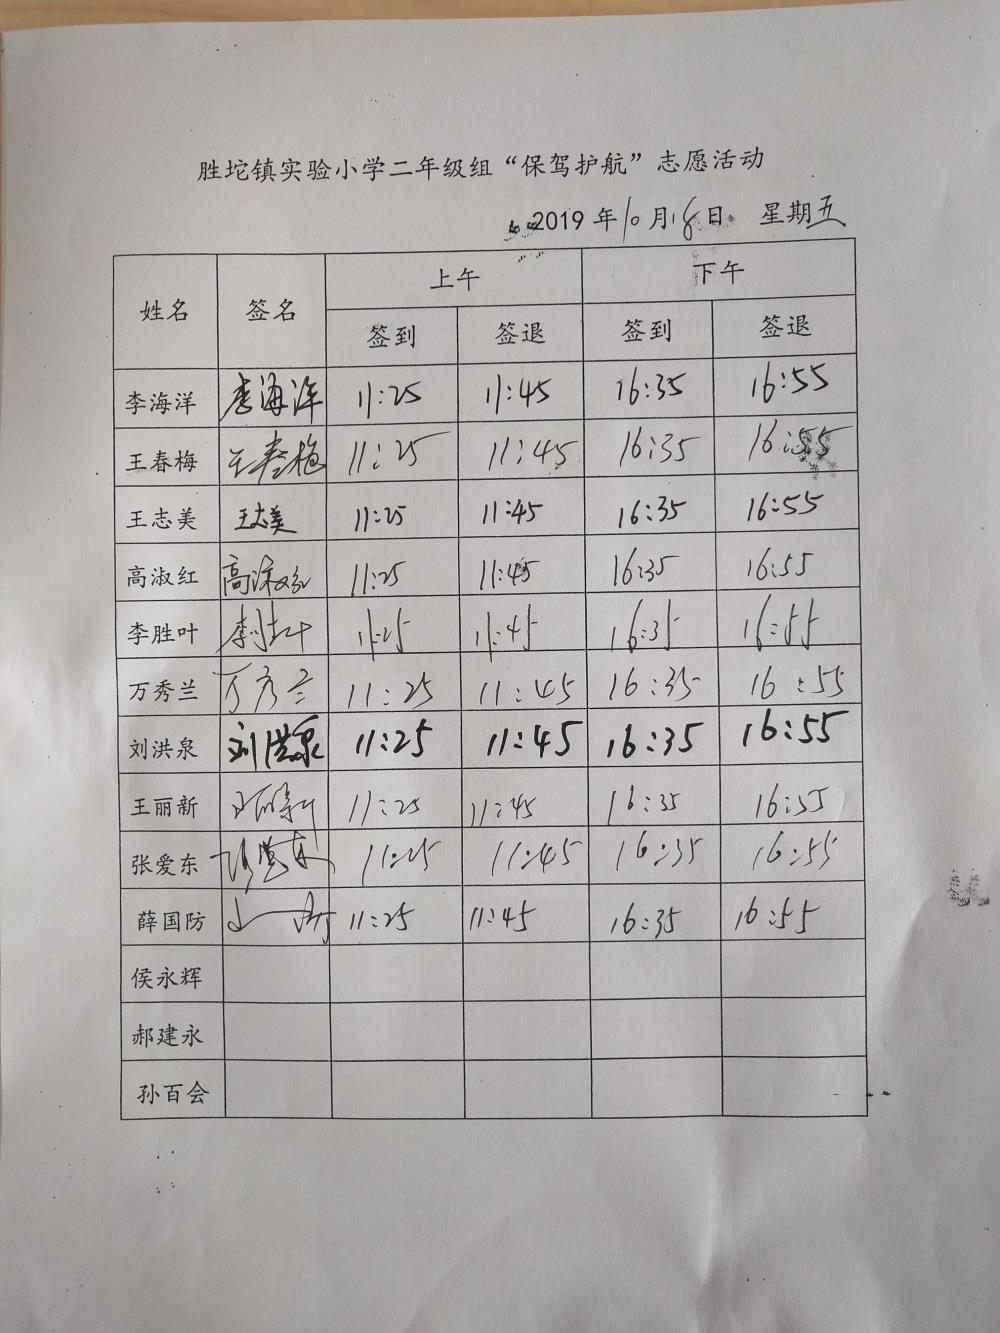 胜坨镇实验小学二年级组“保驾护航”志愿活动
2019年10月18日 星期五
姓名 签名 上午 下午
签到 签退 签到 签退
李海洋 李海洋 11:25 11:45 16:35 16:55
王春梅 王春梅 11:25 11:45 16:35 16:55
王志美 王志美 11:25 11:45 16:35 16:55
高淑红 高淑红 11:25 11:45 16:35 16:55
李胜叶 李胜叶 11:25 11:45 16:35 16:55
万秀兰 万秀兰 11:25 11:45 16:35 16:55
刘洪泉 刘洪泉 11:25 11:45 16:35 16:55
王丽新 王丽新 11:25 11:45 16:35 16:55
张爱东 张爱东 11:25 11:45 16:35 16:55
薛国防 11:25 11:45 16:35 16:55
侯永辉
郝建永
孙百会